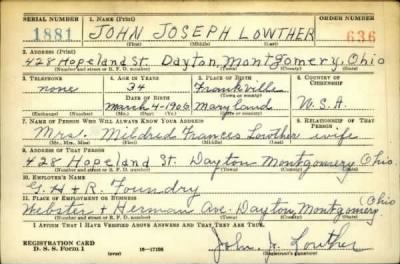 SERIAL NUMBER 1. NAME (Print) ORDER NUMBER
1881 JOHN JOSEPH LOWTHER 636
(First) (Middle) (Last)
2. ADDRESS (Print)
428 Hopeland St. Dayton, Montgomery, Ohio
(Number and street or R. F. D. number) (Town) (County) (State)
3. TELEPHONE 4. AGE IN YEARS 5. PLACE OF BIRTH 6. COUNTRY OF CITIZENSHIP
none 34 Frankville
DATE OF BIRTH (Town or county)
March-4-1906 Maryland U.S.A.
(Exchange) (Number) (Mo.) (Day) (Yr.) (State or country)
7. NAME OF PERSON WHO WILL ALWAYS KNOW YOUR ADDRESS 8. RELATIONSHIP OF THAT PERSON
Mrs. Mildred Frances Lowther wife
(Mr., Mrs., Miss) (First) (Middle) (Last)
9. ADDRESS OF THAT PERSON
428 Hopeland St. Dayton Montgomery Ohio
(Number and street or R. F. D. number) (Town) (County) (State)
10. EMPLOYER'S NAME
G. H + R. Foundry
11. PLACE OF EMPLOYMENT OR BUSINESS
Webster + Herman Ave. Dayton, Montgomery Ohio
(Number and street or R. F. D. number) (Town) (County) (State)
I AFFIRM THAT I HAVE VERIFIED ABOVE ANSWERS AND THAT THEY ARE TRUE.
REGISTRATION CARD
D. S. S. FORM 1 16-17105 John J. Lowther
(Registrant's signature)